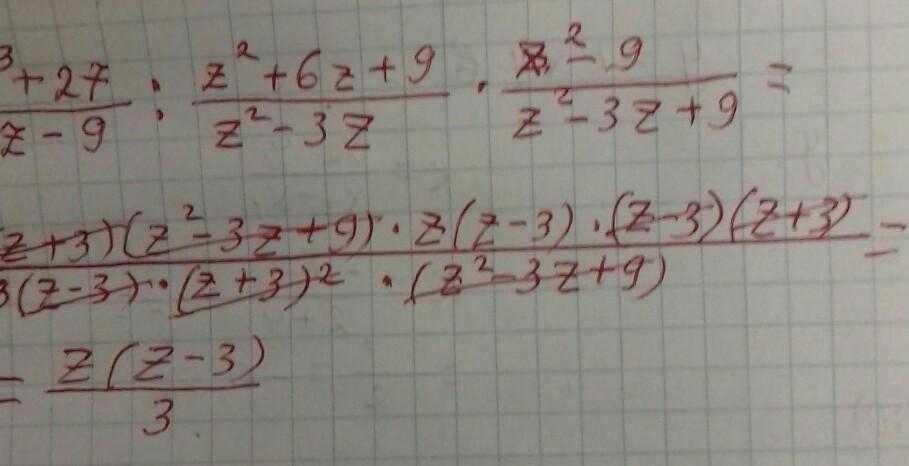 ³+27/z-9 : z²+6z+9/z²-3z · z²-9/z²-3z+9 =
z+3)(z²-3z+9)·z(z-3)·(z-3)(z+3)/3(z-3)·(z+3)²·(z²-3z+9) =
= z(z-3)/3